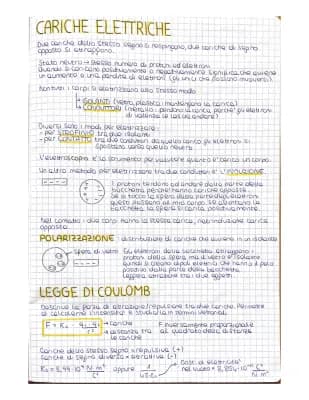 CARICHE ELETTRICHE
Due cariche dello stesso segno si respingono, due cariche di segno
opposto si attraggono.
Stato neutro → stesso numero di protoni ed elettroni
Quando si caricano positivamente o negativamente significa che avviene
un aumento o una perdita di elettroni (gli unici che possono muoversi).
Non tutti i corpi si elettrizzano allo stesso modo
→ ISOLANTI (vetro, plastica) mantengono la carica
→ CONDUTTORI (metalli) perdono la carica perché gli elettroni
di valenza (e las andare)
Diversi sono i modi per elettrizzare:
- per STROFINIO tra due isolanti
- per CONTATTO tra due conduttori da quello carico gli elettroni si
spostano verso quello neutro
L'elettroscopio è lo strumento per valutare quanto è carico un corpo.
Un altro metodo per elettrizzare tra due conduttori è L'INDUZIONE
I protoni tendono ad andare dalla parte della
bacchetta perché hanno cariche opposte.
Se si tocca la sfera dalla parte degli elettroni
questi passano al mio corpo. Se allontano la
bacchetta la sfera è carica positivamente
Nel contatto i due corpi hanno la stessa carica, nell'induzione carica
opposta
POLARIZZAZIONE: distribuzione di cariche che avviene in un isolante
sfera di vetro
Gli elettroni della bacchetta attraggono i
protoni della sfera, ma il vetro è isolante
quindi si creano dipoli elettrici che hanno il polo
positivo dalla parte della bacchetta.
Leggera attrazione tra i due oggetti
LEGGE DI COULOMB
Descrive la forza di attrazione/repulsione tra due cariche. Permette
di calcolarne l'intensità e studiarla in termini vettoriali.
F = K₀ · q₁ · q₂ / r²
→ cariche
→ distanza tra
le cariche
F inversamente proporzionale
al quadrato della distanza
Cariche dello stesso segno → repulsiva (+)
Cariche di segno diverso → attrattiva (-)
K₀ = 8,99 · 10⁹ N · m² / C² oppure 1 / 4πε₀
→ cost. dielettrica
nel vuoto = 8,854 · 10⁻¹² C² / N · m²